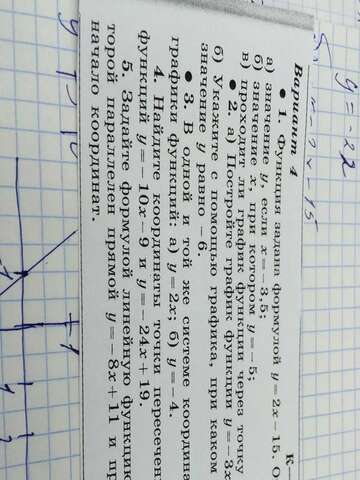 Вариант 4
К—
• 1. Функция задана формулой y = 2x − 15. О
а) значение y, если x = −3,5;
б) значение x, при котором y = −5;
в) проходит ли график функции через точку
• 2. а) Постройте график функции y = −3x
б) Укажите с помощью графика, при каком
значение y равно −6.
• 3. В одной и той же системе координа
графики функций: а) y = 2x; б) y = −4.
4. Найдите координаты точки пересечен
функций y = −10x − 9 и y = −24x + 19.
5. Задайте формулой линейную функцию
торой параллелен прямой y = −8x + 11 и пр
начало координат.